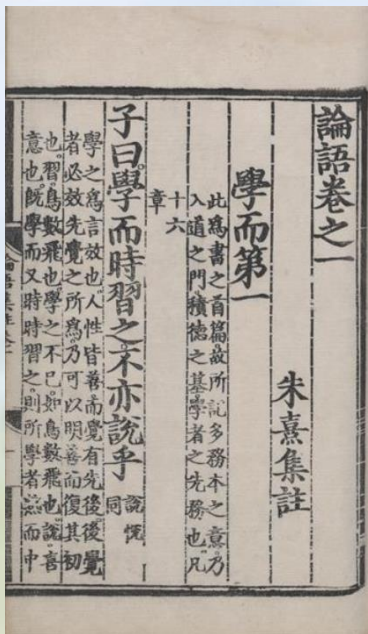 論語卷之一
朱熹集註
學而第一
此爲書之首篇故所記多務本之意乃
入道之門積德之基學者之先務也凡
十六
章
子曰學而時習之不亦說乎
說悅
同
學之爲言效也人性皆善而覺有先後後覺
者必效先覺之所爲乃可以明善而復其初
也習鳥數飛也學之不已如鳥數飛也說喜
意也旣學而又時時習之則所學者熟而中